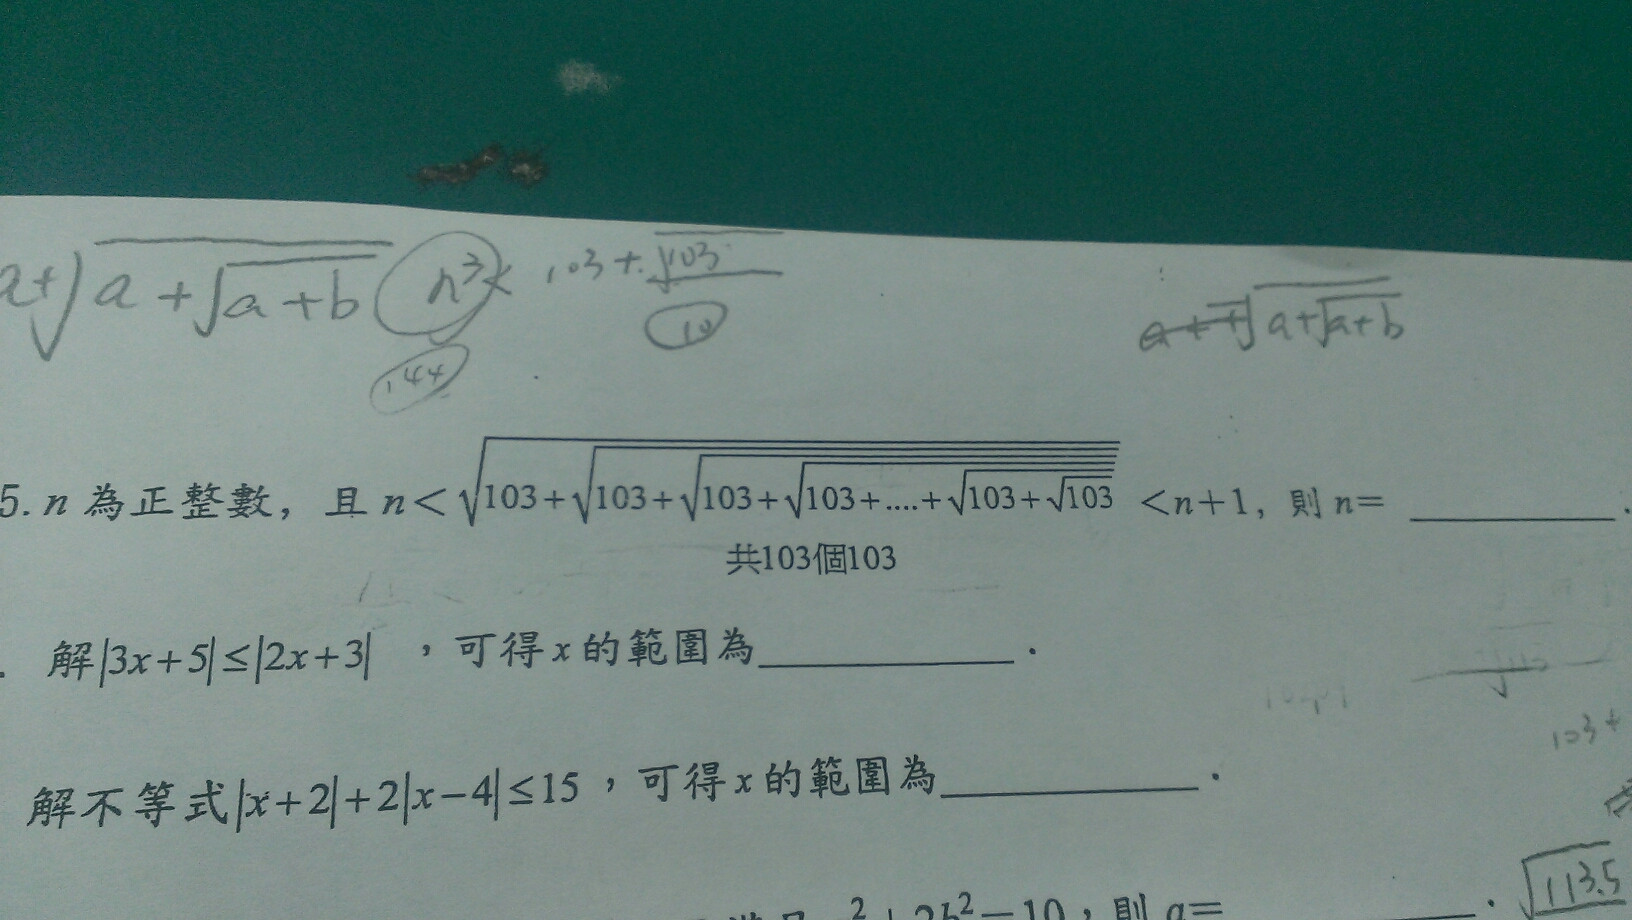 a+√a+√a+b n³< 103+√103
a+√a+√a+b
10
144
5. n 為正整數，且 n<√103+√103+√103+√103+....+√103+√103 <n+1，則 n= ______.
共103個103
. 解|3x+5|≤|2x+3| ，可得 x 的範圍為______.
103+
解不等式|x+2|+2|x-4|≤15，可得 x 的範圍為______.
²+2b²=10，則 a=______.
√113.5